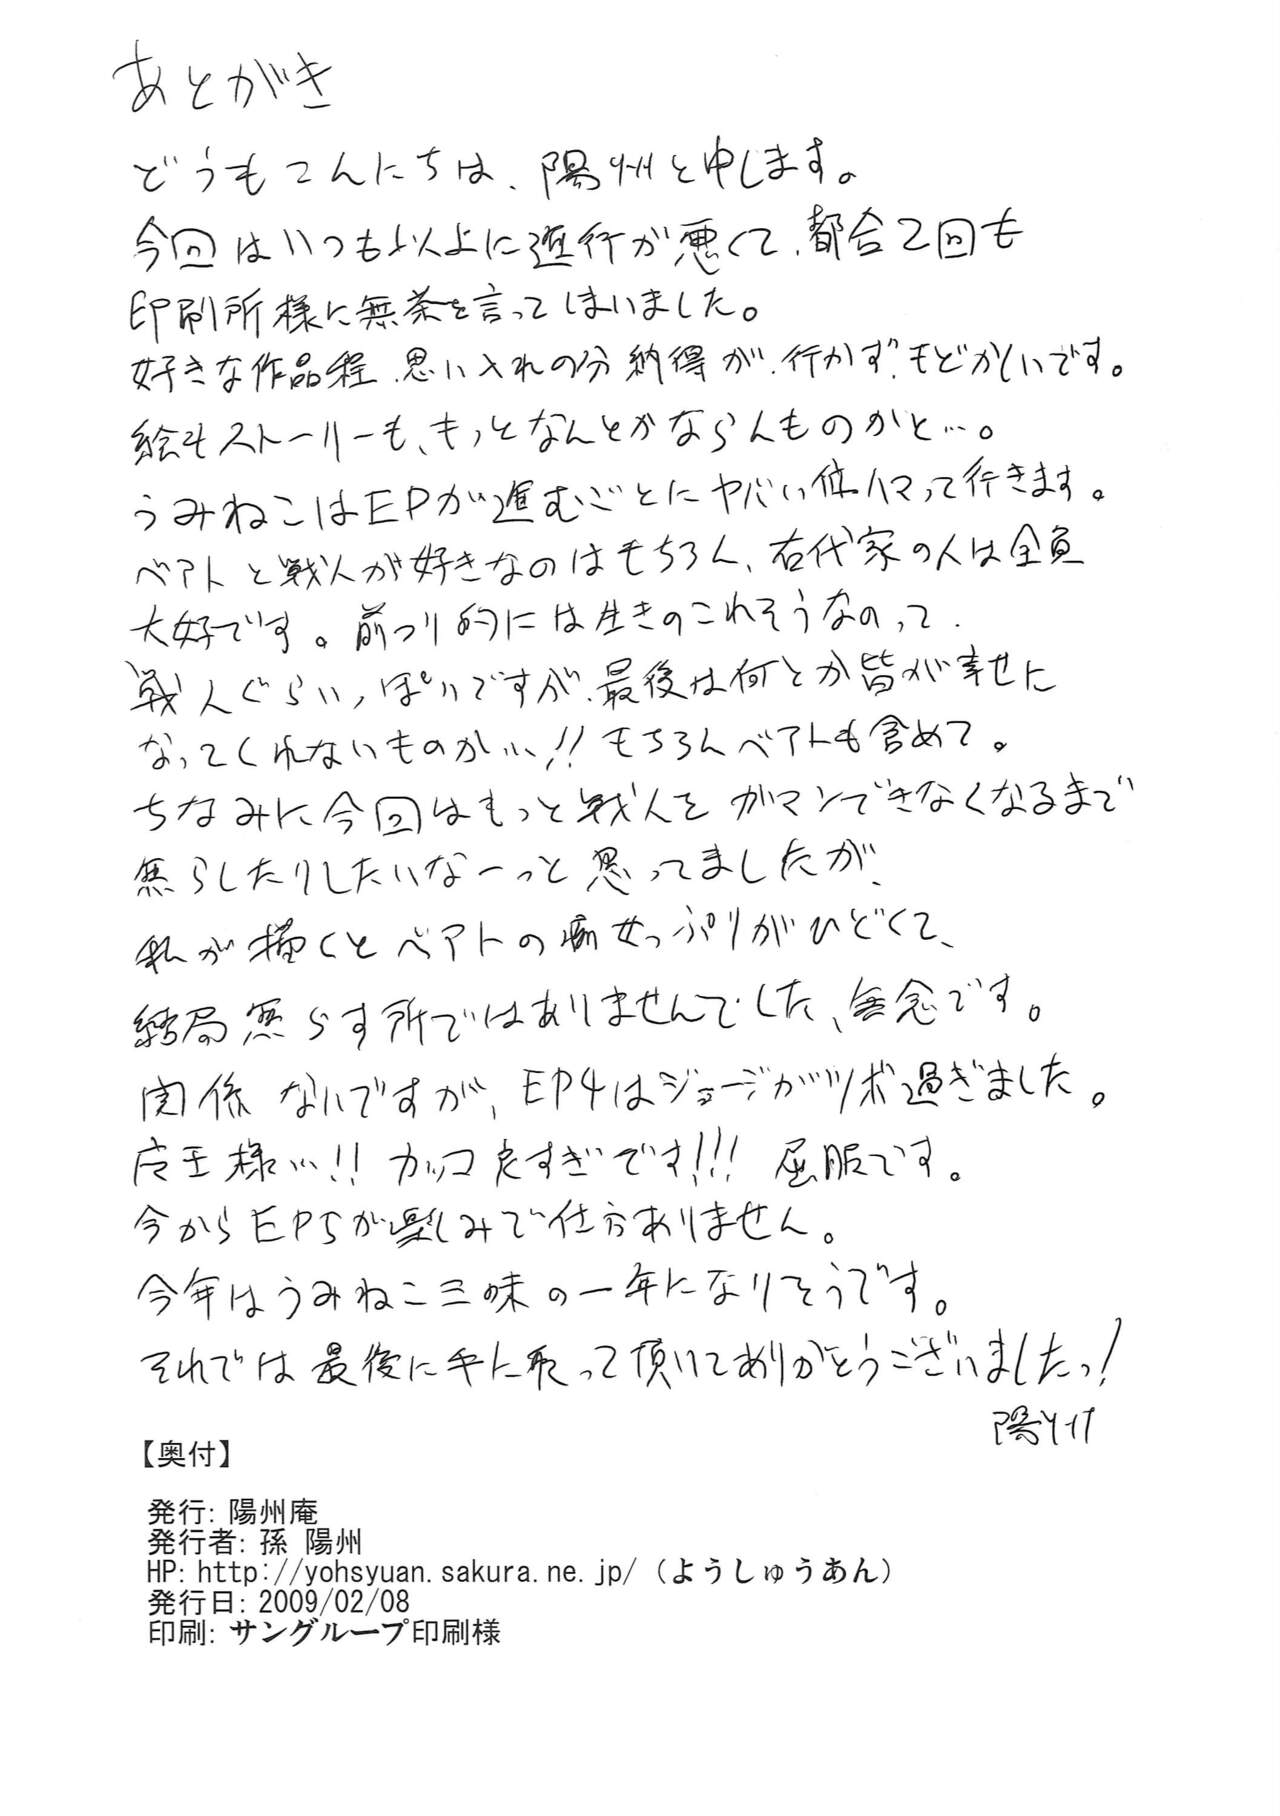 あとがき
どうもこんにちは、陽州と申します。
今回はいつも以上に進行が悪くて、都合2回も
印刷所様に無茶を言ってしまいました。
好きな作品程、思い入れの分納得が行かず、もどかしいです。
絵もストーリーも、もっとなんとかならんものかと…。
うみねこはEPが進むごとにヤバい位ハマって行きます。
ベアトと戦人が好きなのはもちろん、右代家の人は全員
大好です。前フリ的には生きのこれそうなのって、
戦人ぐらいっぽいですが、最後は何とか皆が幸せに
なってくれないものか…!! もちろんベアトも含めて。
ちなみに今回はもっと戦人をガマンできなくなるまで
焦らしたりしたいなーっと思ってましたが、
私が描くとベアトの痴女っぷりがひどくて、
結局焦らす所ではありませんでした、無念です。
関係ないですが、EP4はジョージがツボ過ぎました。
店王様…!! カッコ良すぎです!!! 屈服です。
今からEP5が楽しみで仕方ありません。
今年はうみねこ三昧の一年になりそうです。
それでは最後に手に取って頂いてありがとうございましたっ!
陽州
【奥付】
発行: 陽州庵
発行者: 孫 陽州
HP: http://yohsyuan.sakura.ne.jp/ (ようしゅうあん)
発行日: 2009/02/08
印刷: サングループ印刷様